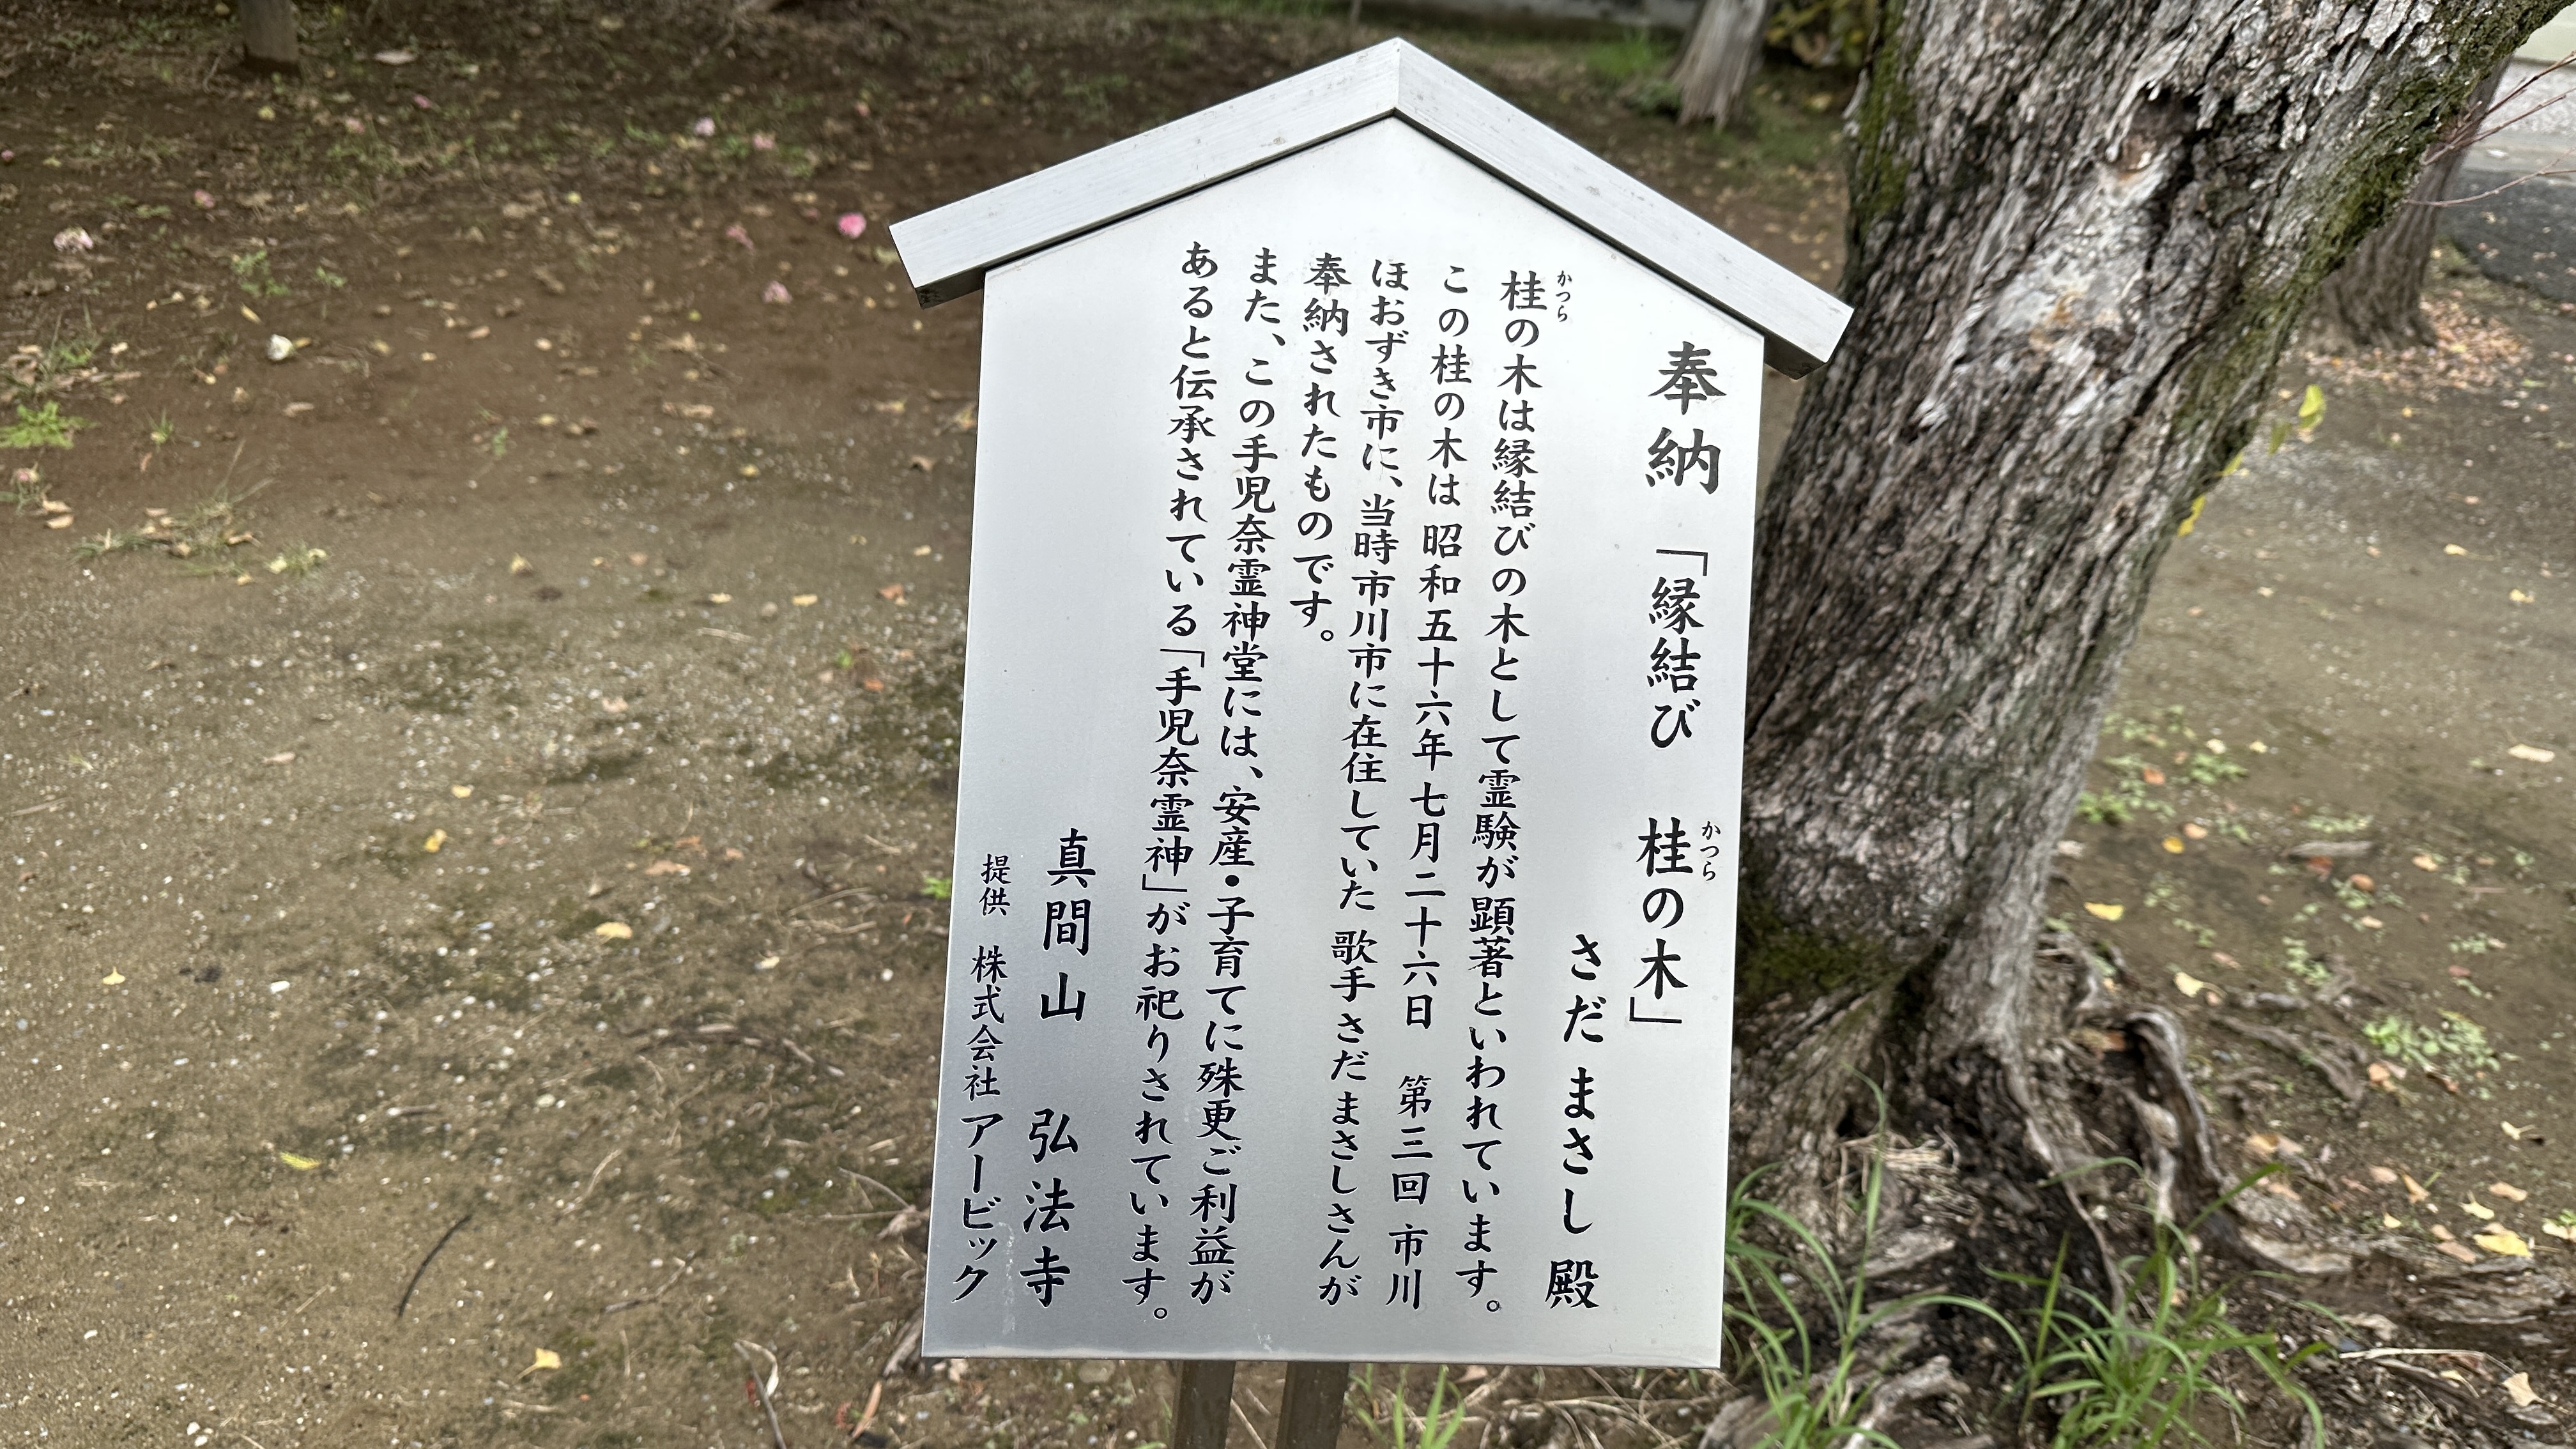 奉納 「縁結び 桂の木」
かつら
さだ まさし 殿
桂の木は縁結びの木として霊験が顕著といわれています。
かつら
この桂の木は昭和五十六年七月二十六日 第三回市川
ほおずき市に、当時市川市に在住していた歌手さだまさしさんが
奉納されたものです。
また、この手児奈霊神堂には、安産・子育てに殊更ご利益が
あると伝承されている「手児奈霊神」がお祀りされています。
真間山 弘法寺
提供 株式会社アービック